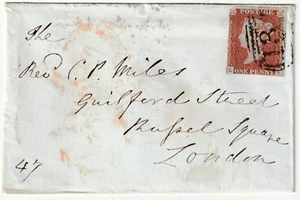 POSTAGE
ONE PENNY
The
Revd C. P. Miles
Guilford Street
Russel Square
London
47